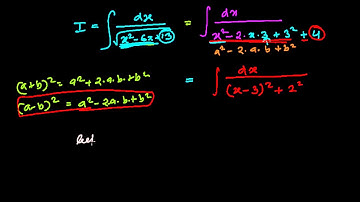 I = ∫ dx / √(x² - 6x + 13) = ∫ dx / x² - 2·x·3 + 3² + 4
a² - 2·a·b + b²
(a+b)² = a² + 2·a·b + b²
(a-b)² = a² - 2a·b + b²
= ∫ dx / (x-3)² + 2²